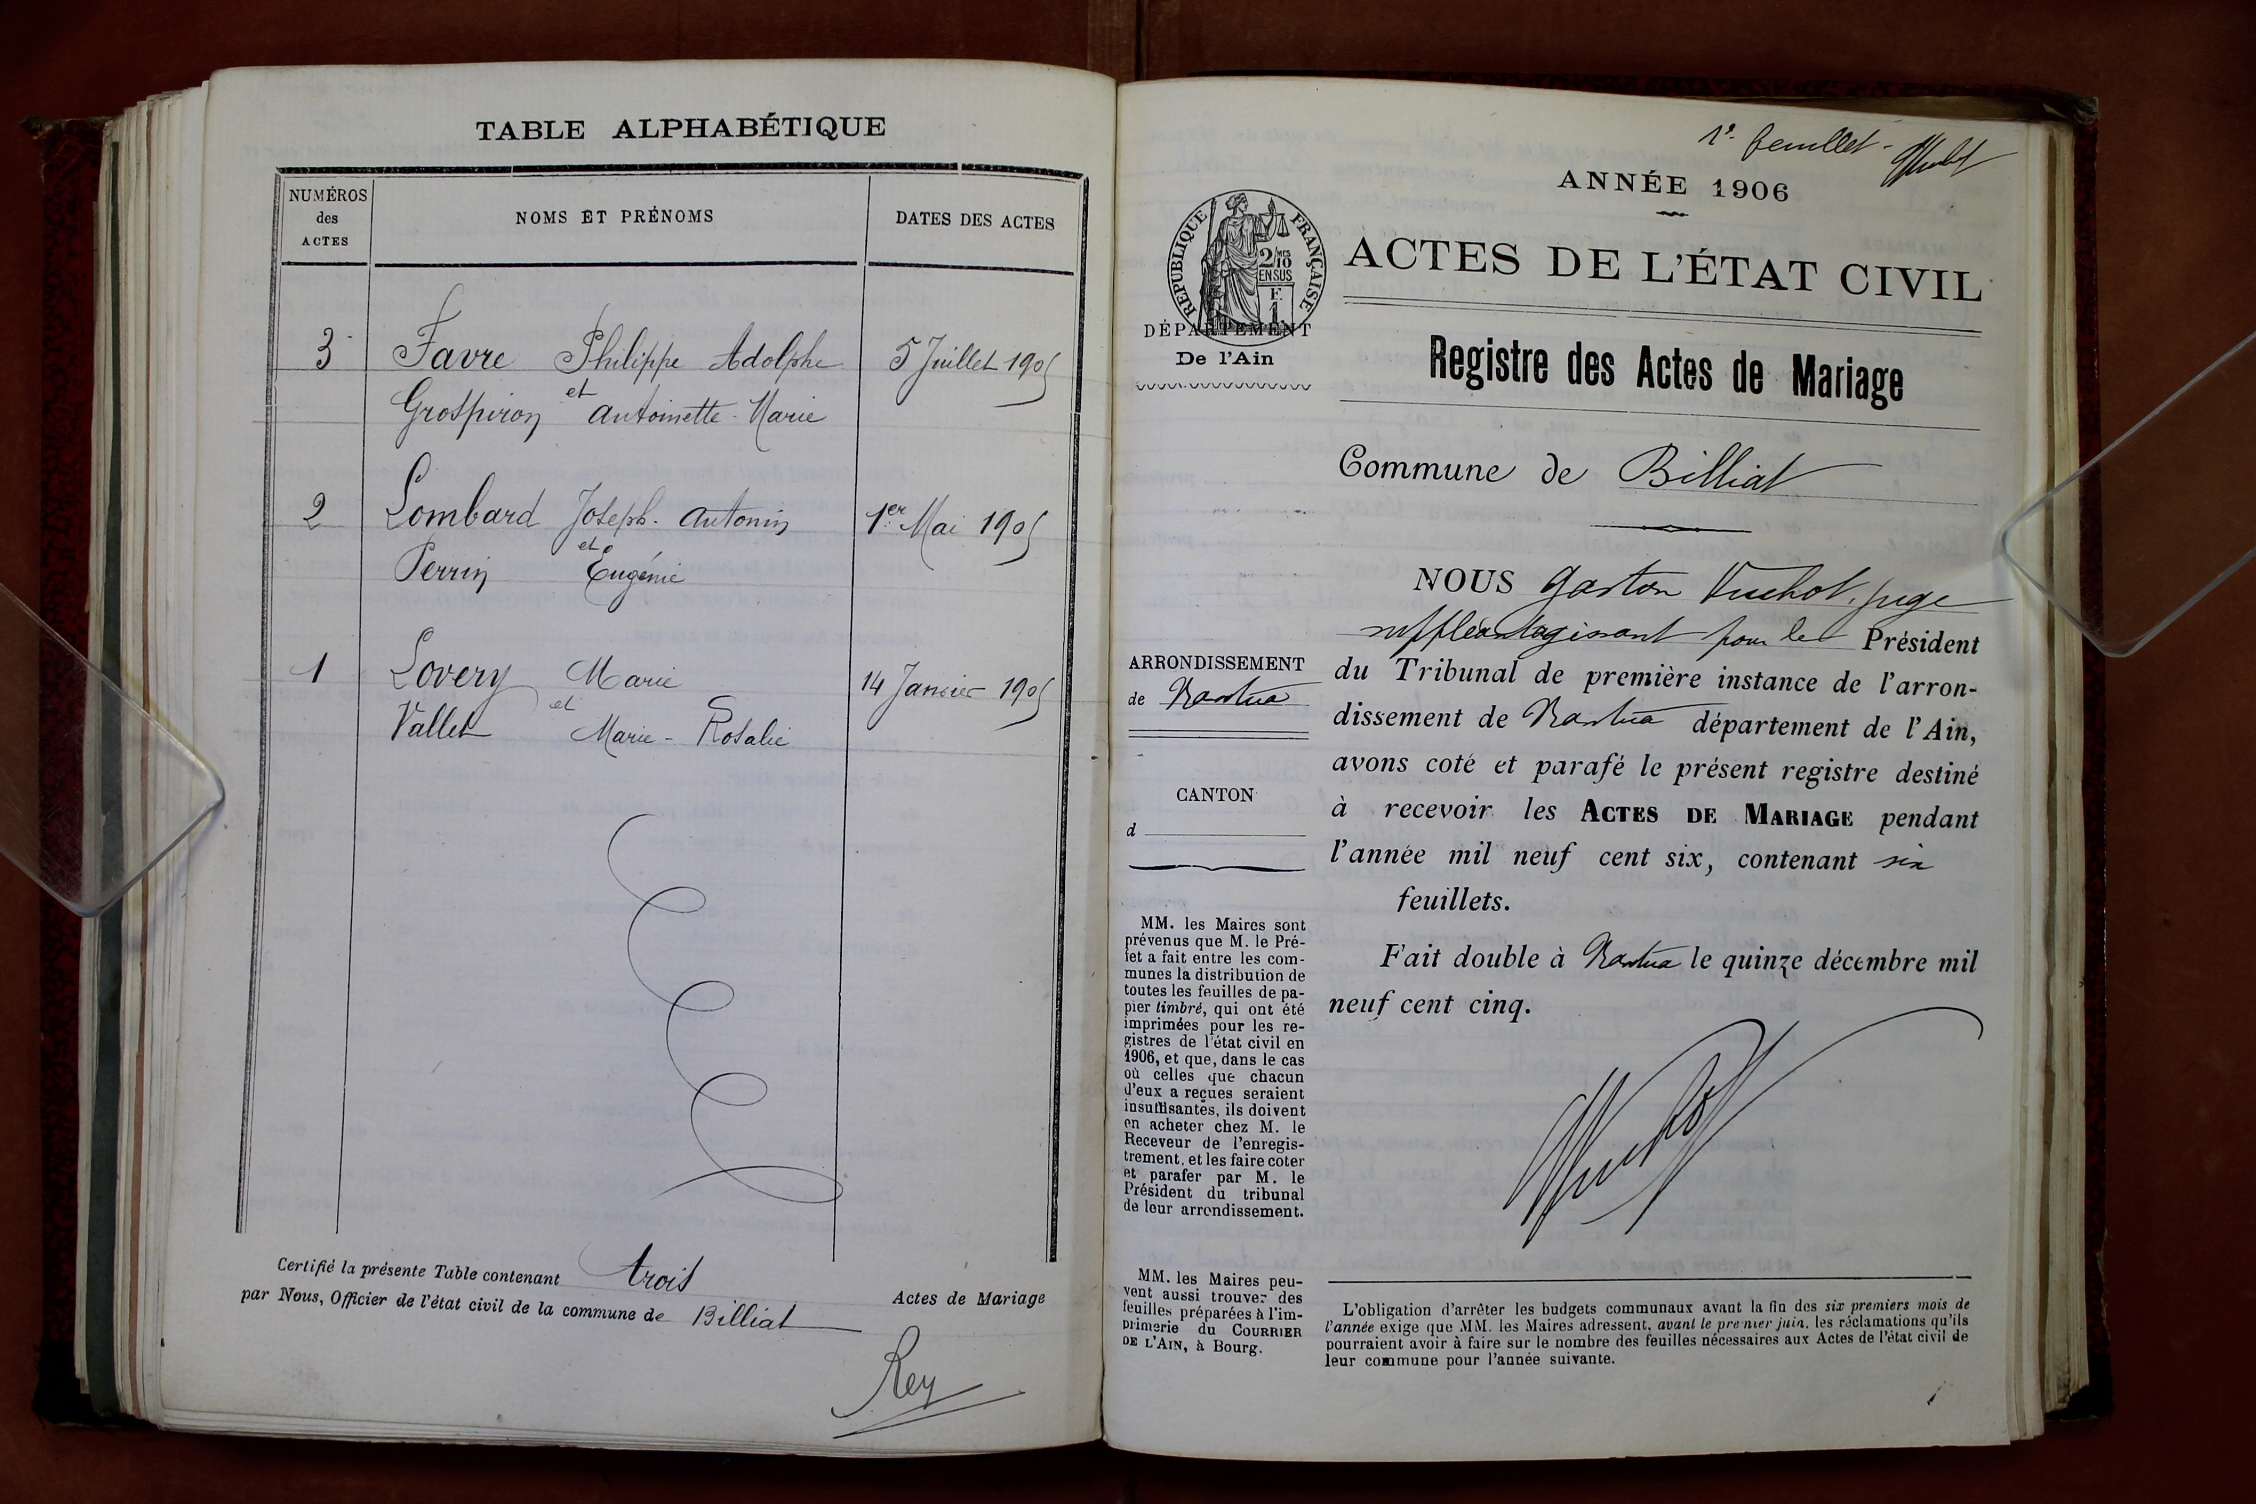 TABLE ALPHABÉTIQUE
NUMÉROS
des
ACTES
NOMS ET PRÉNOMS
DATES DES ACTES
3 Favre Philippe Adolphe 5 Juillet 1905
et
Grospiron Antoinette-Marie
2 Lombard Joseph-Antonin 1er Mai 1905
et
Perrin Eugénie
1 Lovery Marie 14 Janvier 1905
et
Vallet Marie-Rosalie
Certifié la présente Table contenant trois Actes de Mariage
par Nous, Officier de l'état civil de la commune de Billiat
Rey
1er feuillet
ANNÉE 1906
RÉPUBLIQUE FRANÇAISE
2/10 MES
EN SUS
F.
1
DÉPARTEMENT
De l'Ain
ACTES DE L'ÉTAT CIVIL
Registre des Actes de Mariage
Commune de Billiat
ARRONDISSEMENT
de Nantua
CANTON
d
MM. les Maires sont
prévenus que M. le Pré-
fet a fait entre les com-
munes la distribution de
toutes les feuilles de pa-
pier timbré, qui ont été
imprimées pour les re-
gistres de l'état civil en
1906, et que, dans le cas
où celles que chacun
d'eux a reçues seraient
insuffisantes, ils doivent
en acheter chez M. le
Receveur de l'enregis-
trement, et les faire coter
et parafer par M. le
Président du tribunal
de leur arrondissement.
MM. les Maires peu-
vent aussi trouver des
feuilles préparées à l'im-
primerie du COURRIER
DE L'AIN, à Bourg.
NOUS Gaston Vuchot, juge
suppléant agissant pour le Président
du Tribunal de première instance de l'arron-
dissement de Nantua département de l'Ain,
avons coté et parafé le présent registre destiné
à recevoir les ACTES DE MARIAGE pendant
l'année mil neuf cent six, contenant six
feuillets.
Fait double à Nantua le quinze décembre mil
neuf cent cinq.
L'obligation d'arrêter les budgets communaux avant la fin des six premiers mois de
l'année exige que MM. les Maires adressent, avant le premier juin, les réclamations qu'ils
pourraient avoir à faire sur le nombre des feuilles nécessaires aux Actes de l'état civil de
leur commune pour l'année suivante.